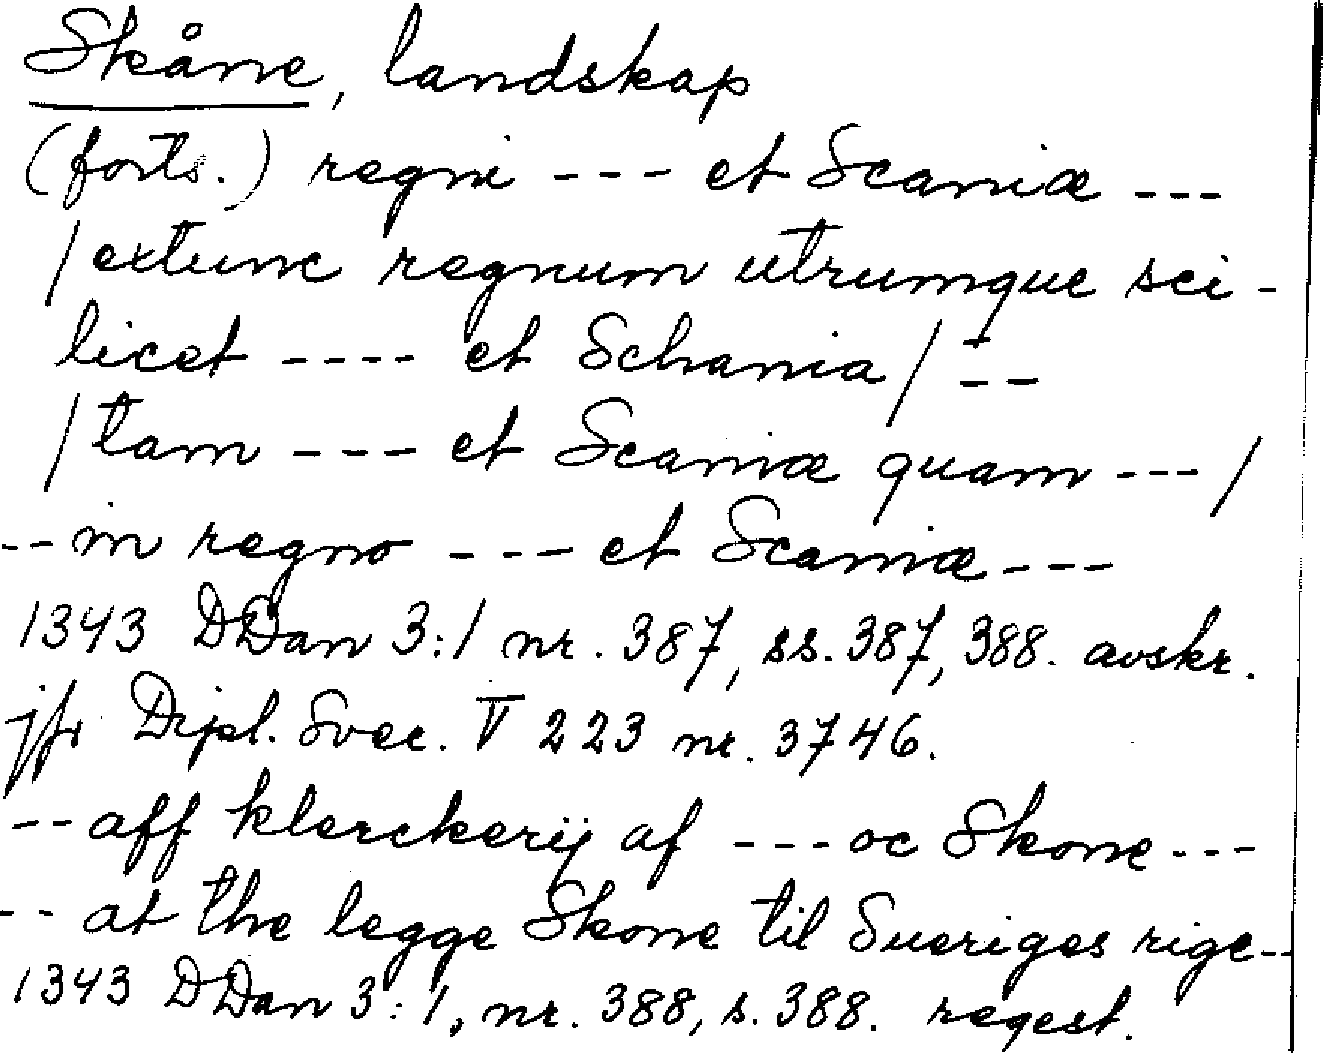 Skåne, landskap
(forts.) regni --- et Scaniæ ---
/extunc regnum utrumque sci-
licet ---- et Schania/ --
/tam --- et Scaniæ quam ---/
-- in regno --- et Scaniæ ---
1343 DDan 3:1 nr. 387, ss. 387, 388. avskr.
jfr Dipl. Svec. V 223 nr. 3746.
-- aff klerckerij af --- oc Skone ---
-- at the legge Skone til Sueriges rige --
1343 DDan 3:1, nr. 388, s. 388. regest.